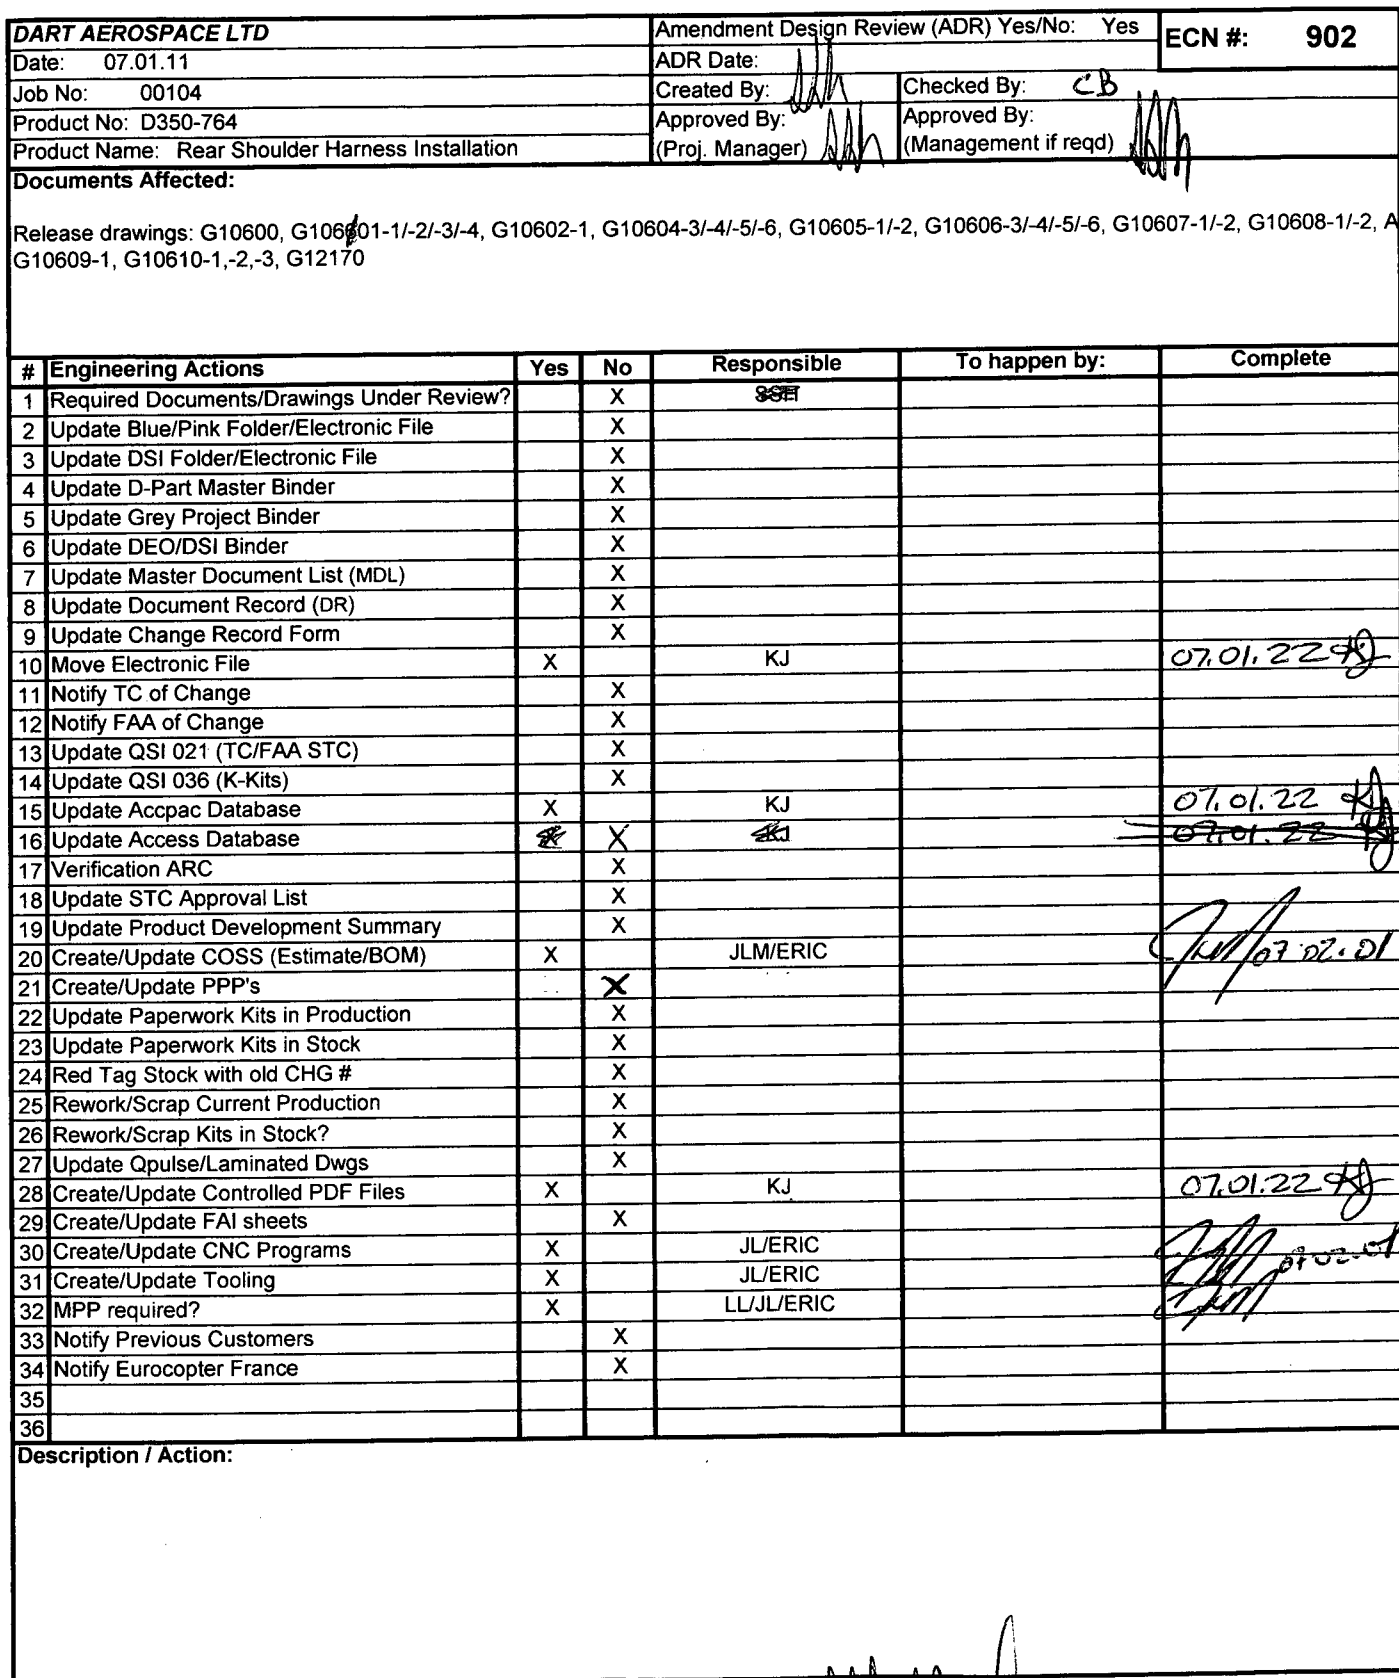 DART AEROSPACE LTD
Amendment Design Review (ADR) Yes/No: Yes
ECN #: 902
Date: 07.01.11
ADR Date:
Job No: 00104
Created By:
Checked By: CB
Product No: D350-764
Approved By:
(Proj. Manager)
Approved By:
(Management if reqd)
Product Name: Rear Shoulder Harness Installation
Documents Affected:
Release drawings: G10600, G106601-1/-2/-3/-4, G10602-1, G10604-3/-4/-5/-6, G10605-1/-2, G10606-3/-4/-5/-6, G10607-1/-2, G10608-1/-2, A
G10609-1, G10610-1,-2,-3, G12170
# Engineering Actions Yes No Responsible To happen by: Complete
1 Required Documents/Drawings Under Review? X
2 Update Blue/Pink Folder/Electronic File X
3 Update DSI Folder/Electronic File X
4 Update D-Part Master Binder X
5 Update Grey Project Binder X
6 Update DEO/DSI Binder X
7 Update Master Document List (MDL) X
8 Update Document Record (DR) X
9 Update Change Record Form X
10 Move Electronic File X KJ 07.01.22 KJ
11 Notify TC of Change X
12 Notify FAA of Change X
13 Update QSI 021 (TC/FAA STC) X
14 Update QSI 036 (K-Kits) X
15 Update Accpac Database X KJ 07.01.22 KJ
16 Update Access Database X X KJ 07.01.22 KJ
17 Verification ARC X
18 Update STC Approval List X
19 Update Product Development Summary X
20 Create/Update COSS (Estimate/BOM) X JLM/ERIC 07.02.01
21 Create/Update PPP's X
22 Update Paperwork Kits in Production X
23 Update Paperwork Kits in Stock X
24 Red Tag Stock with old CHG # X
25 Rework/Scrap Current Production X
26 Rework/Scrap Kits in Stock? X
27 Update Qpulse/Laminated Dwgs X
28 Create/Update Controlled PDF Files X KJ 07.01.22 KJ
29 Create/Update FAI sheets X
30 Create/Update CNC Programs X JL/ERIC 07.02.01
31 Create/Update Tooling X JL/ERIC
32 MPP required? X LL/JL/ERIC
33 Notify Previous Customers X
34 Notify Eurocopter France X
35
36
Description / Action: